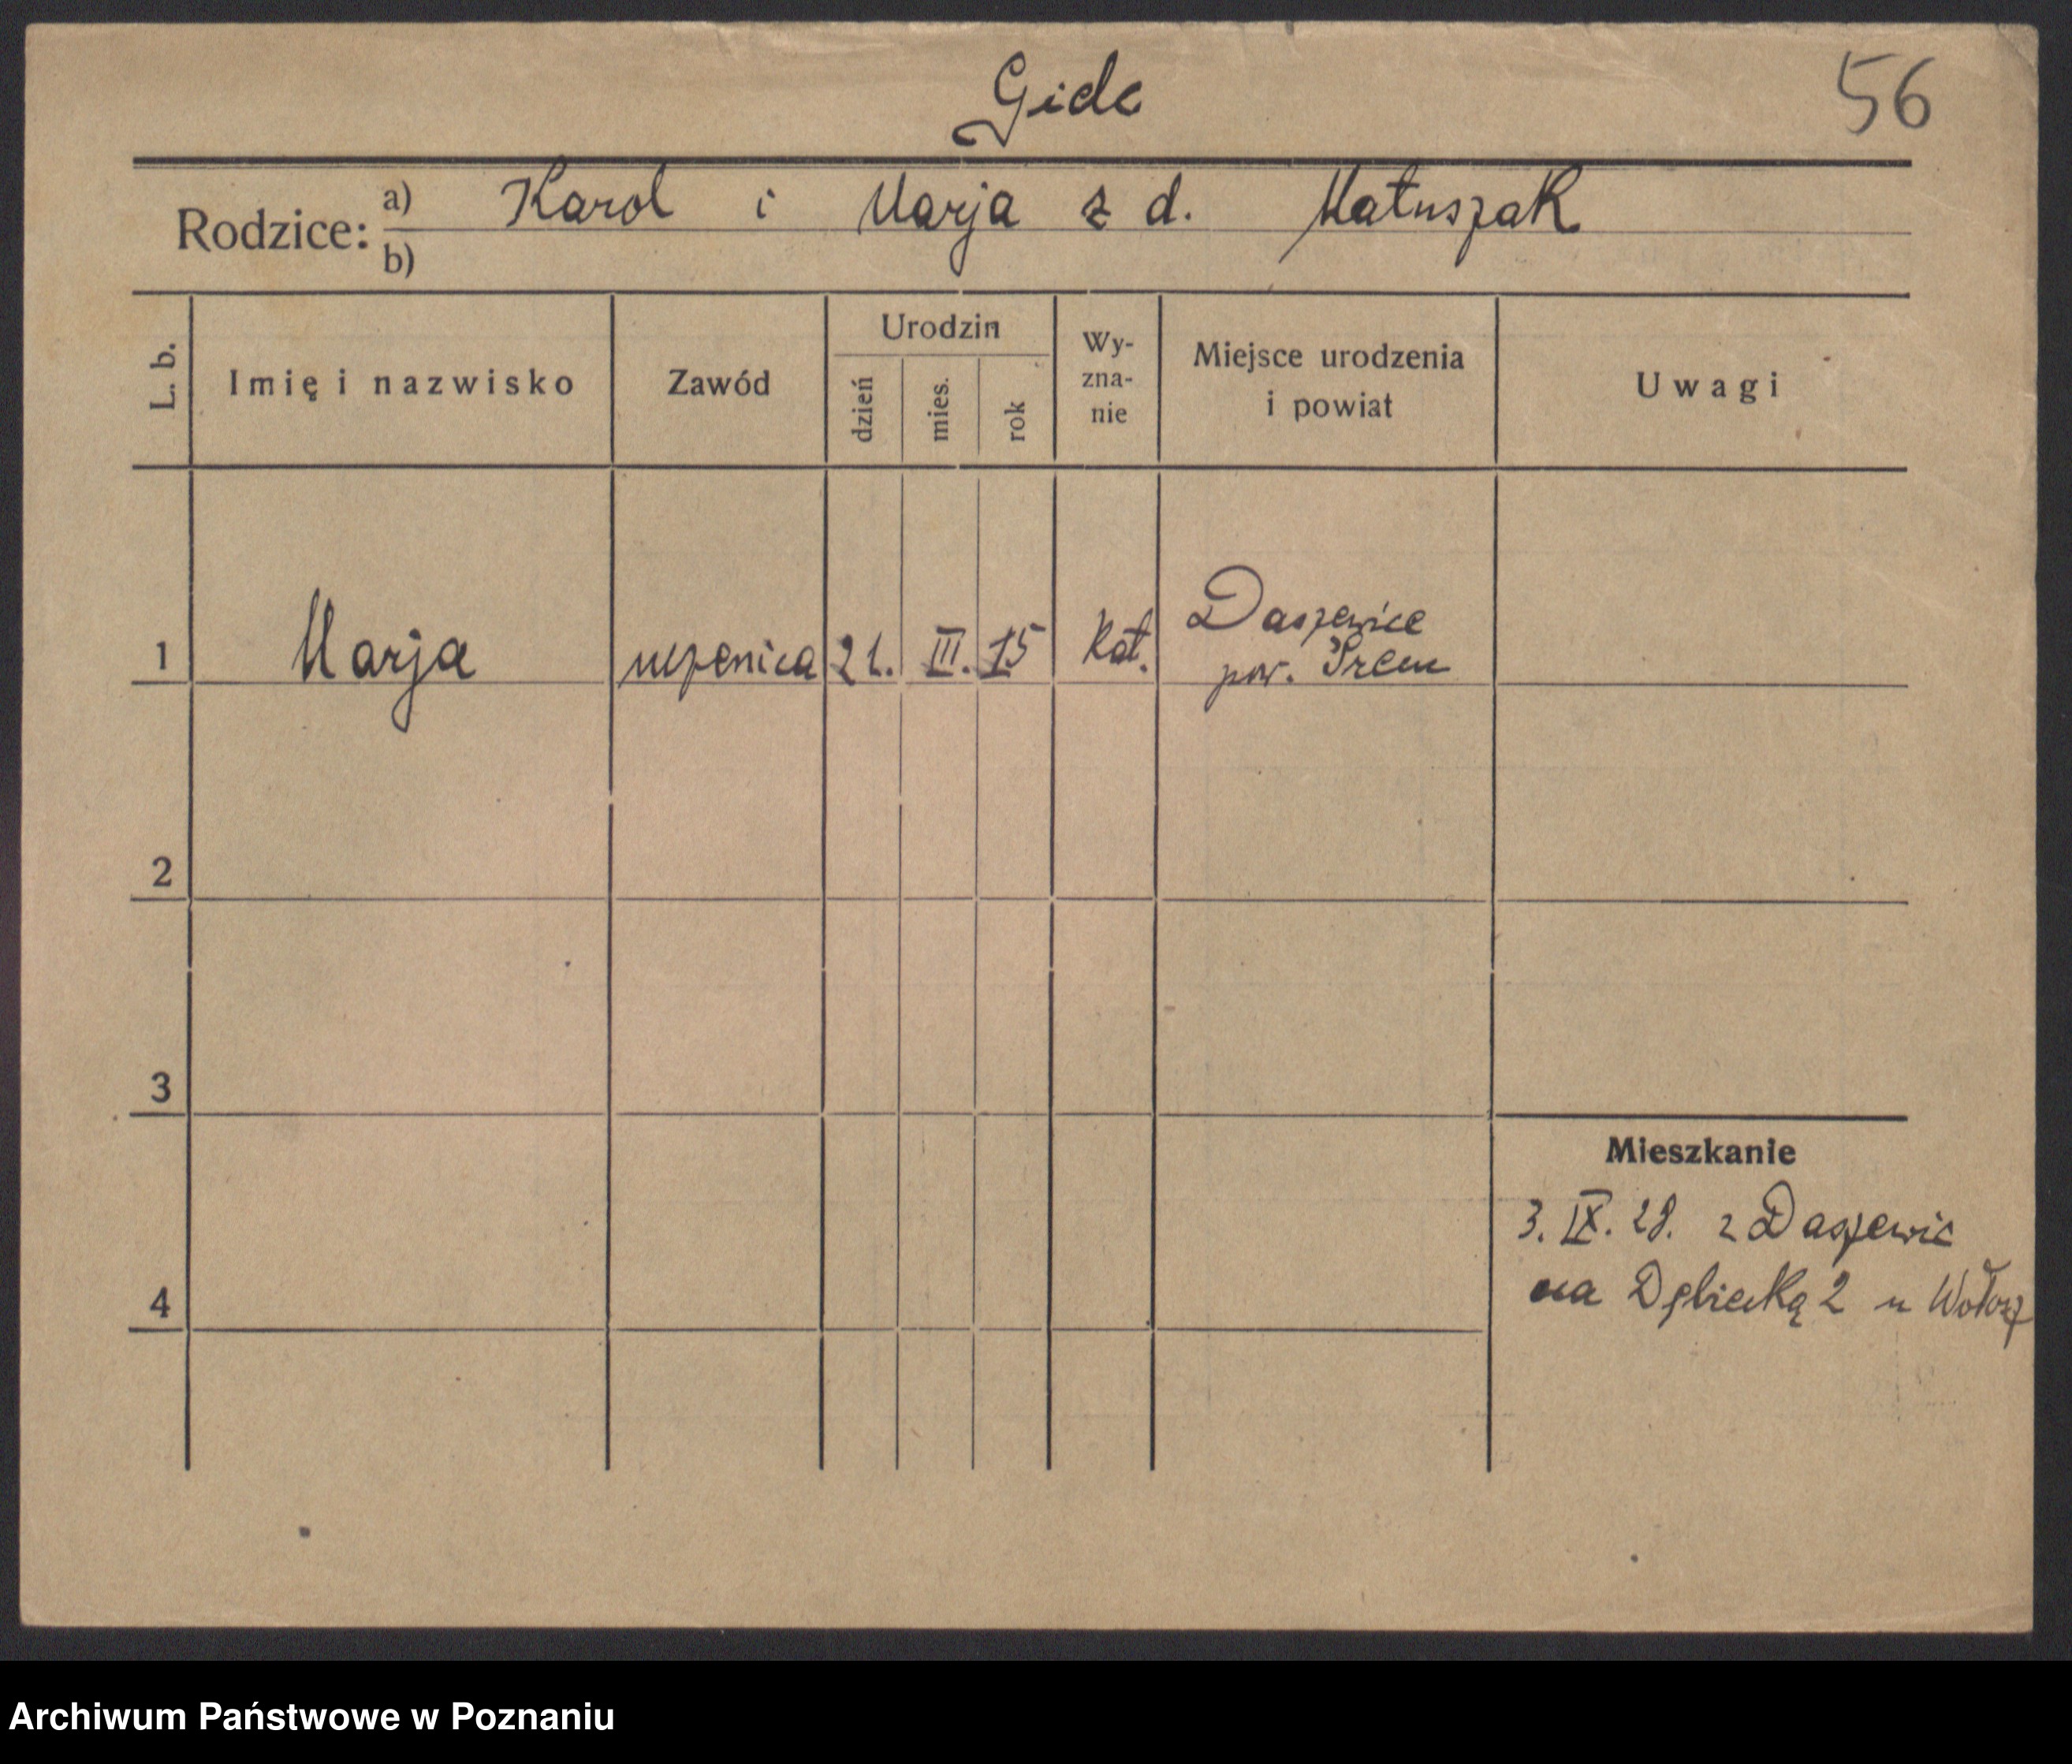 Gide
56
Rodzice: a) Karol i Marja z d. Matuszak
b)
L. b.
Imię i nazwisko
Zawód
Urodzin
dzień
mies.
rok
Wy-
zna-
nie
Miejsce urodzenia
i powiat
Uwagi
1 Marja uczenica 21. III. 15 Kat. Daszewice
pow. Śrem
2
3
4
Mieszkanie
3. IX. 28. z Daszewic
na Dębiecką 2 u
Archiwum Państwowe w Poznaniu